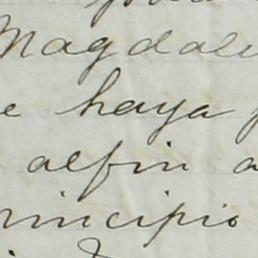 Magdale
e haya p
alfin a
rincipio